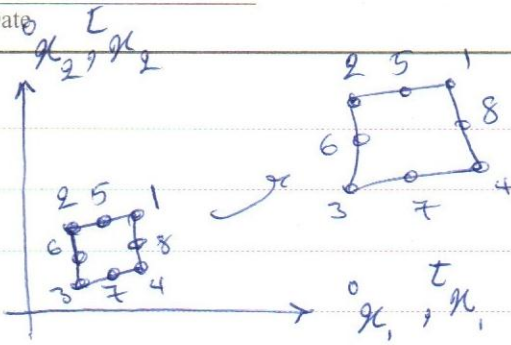 ate
⁰x₂, ᵗx₂
2 5 1
6 8
3 7 4
2 5 1
6 8
3 7 4
⁰x₁, ᵗx₁